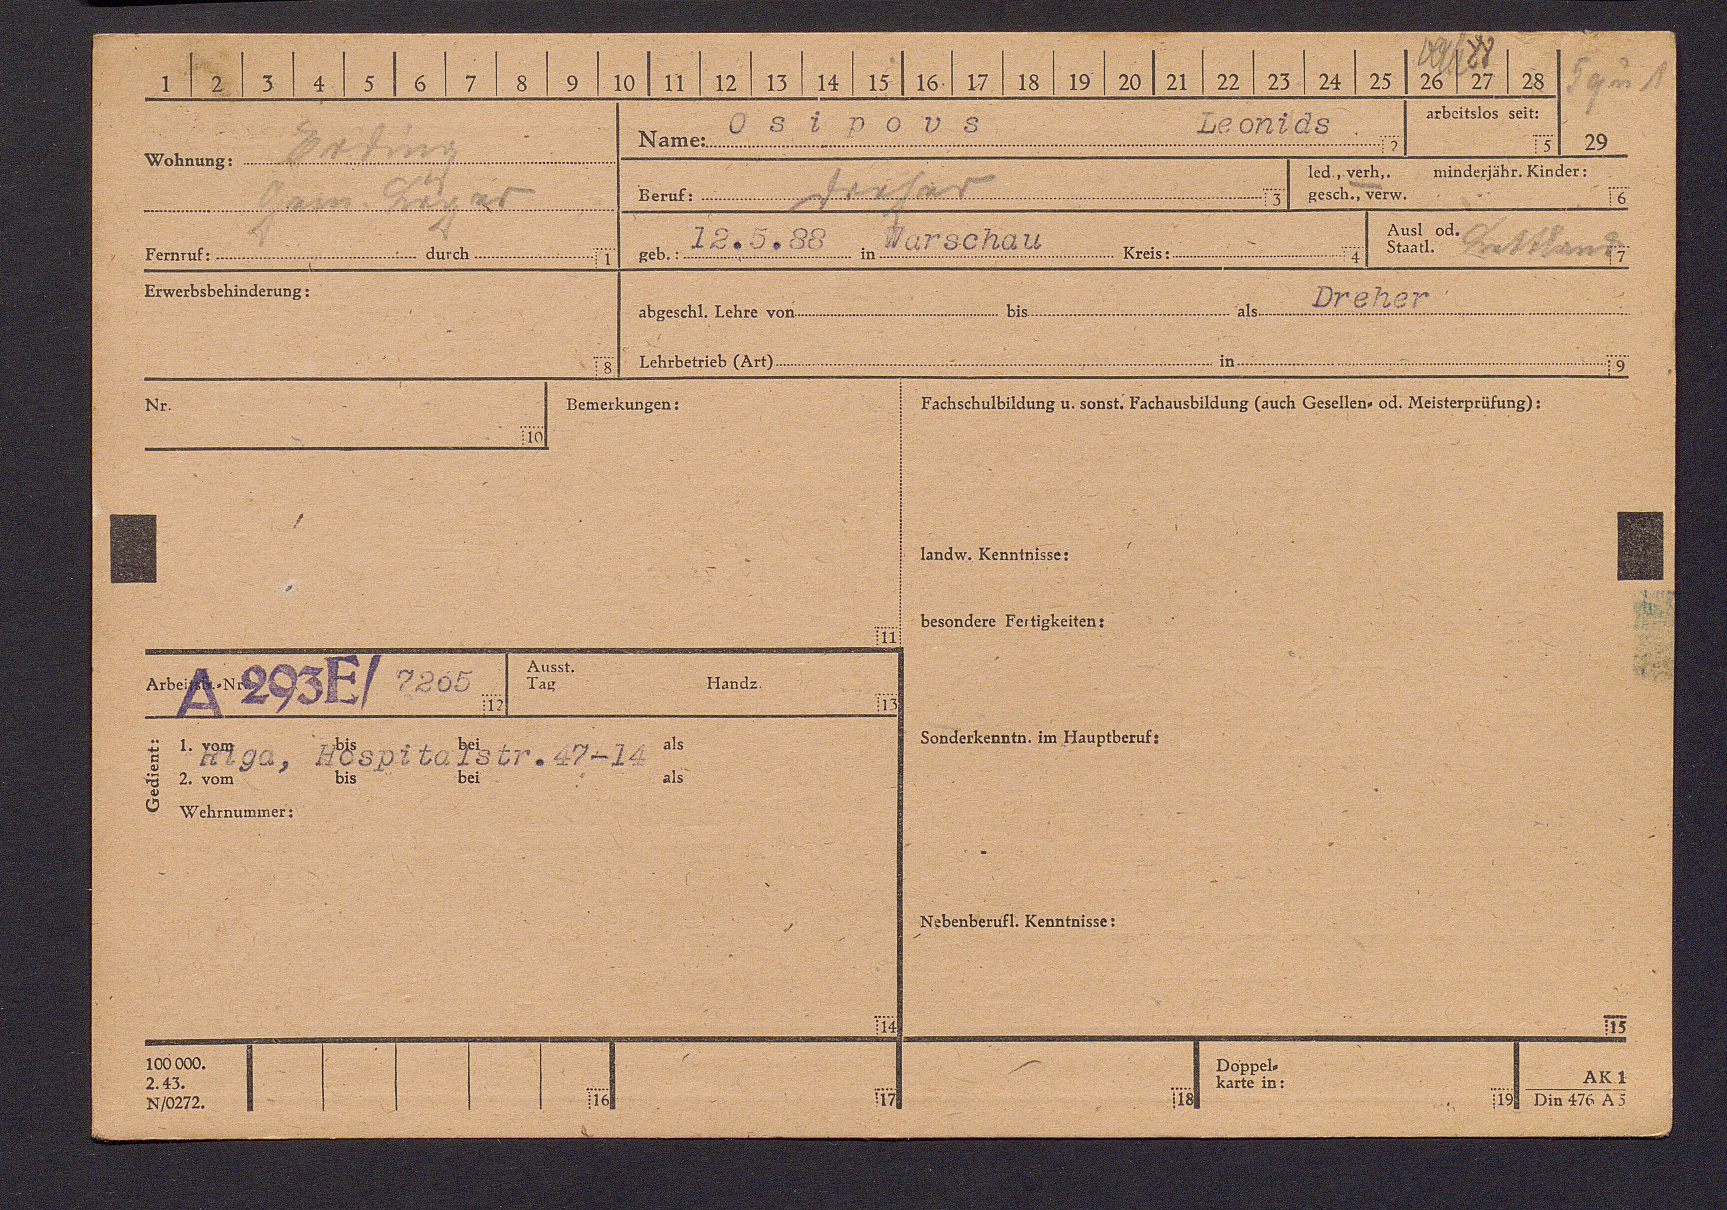 1 2 3 4 5 6 7 8 9 10 11 12 13 14 15 16 17 18 19 20 21 22 23 24 25 26 27 28
29
Wohnung: Erding
Gem. Lager
Fernruf: durch 1
Name: Osipovs Leonids 2
arbeitslos seit: 5
Beruf: Dreher 3
led., verh., minderjähr. Kinder:
gesch., verw. 6
geb.: 12.5.88 in Warschau Kreis: 4
Ausl od.
Staatl. Lettland 7
Erwerbsbehinderung: 8
abgeschl. Lehre von bis als Dreher
Lehrbetrieb (Art) in 9
Nr. 10
Bemerkungen: 11
Fachschulbildung u. sonst. Fachausbildung (auch Gesellen- od. Meisterprüfung):
landw. Kenntnisse:
besondere Fertigkeiten:
Arbeitsb.-Nr. A 293E/ 7205 12
Ausst.
Tag Handz. 13
Gedient:
1. vom bis bei als
Riga, Hospitalstr.47-14
2. vom bis bei als
Wehrnummer:
14
Sonderkenntn. im Hauptberuf:
Nebenberufl. Kenntnisse:
15
100 000.
2. 43.
N/0272.
16 17 18
Doppel-
karte in: 19
AK 1
Din 476 A 5